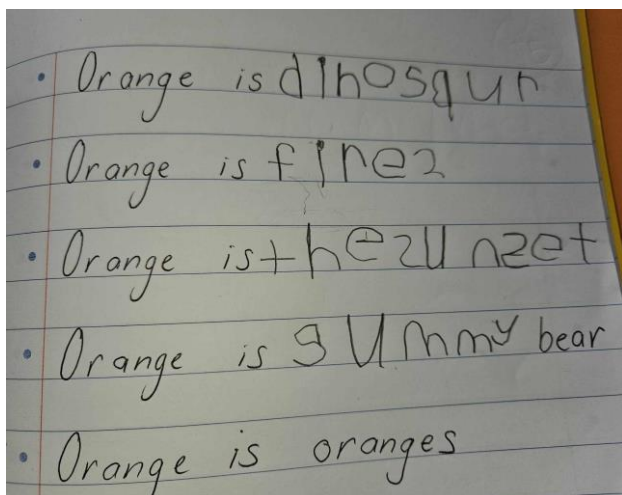 • Orange is dinosaur
• Orange is fires
• Orange is the sunset
• Orange is gummy bear
• Orange is oranges